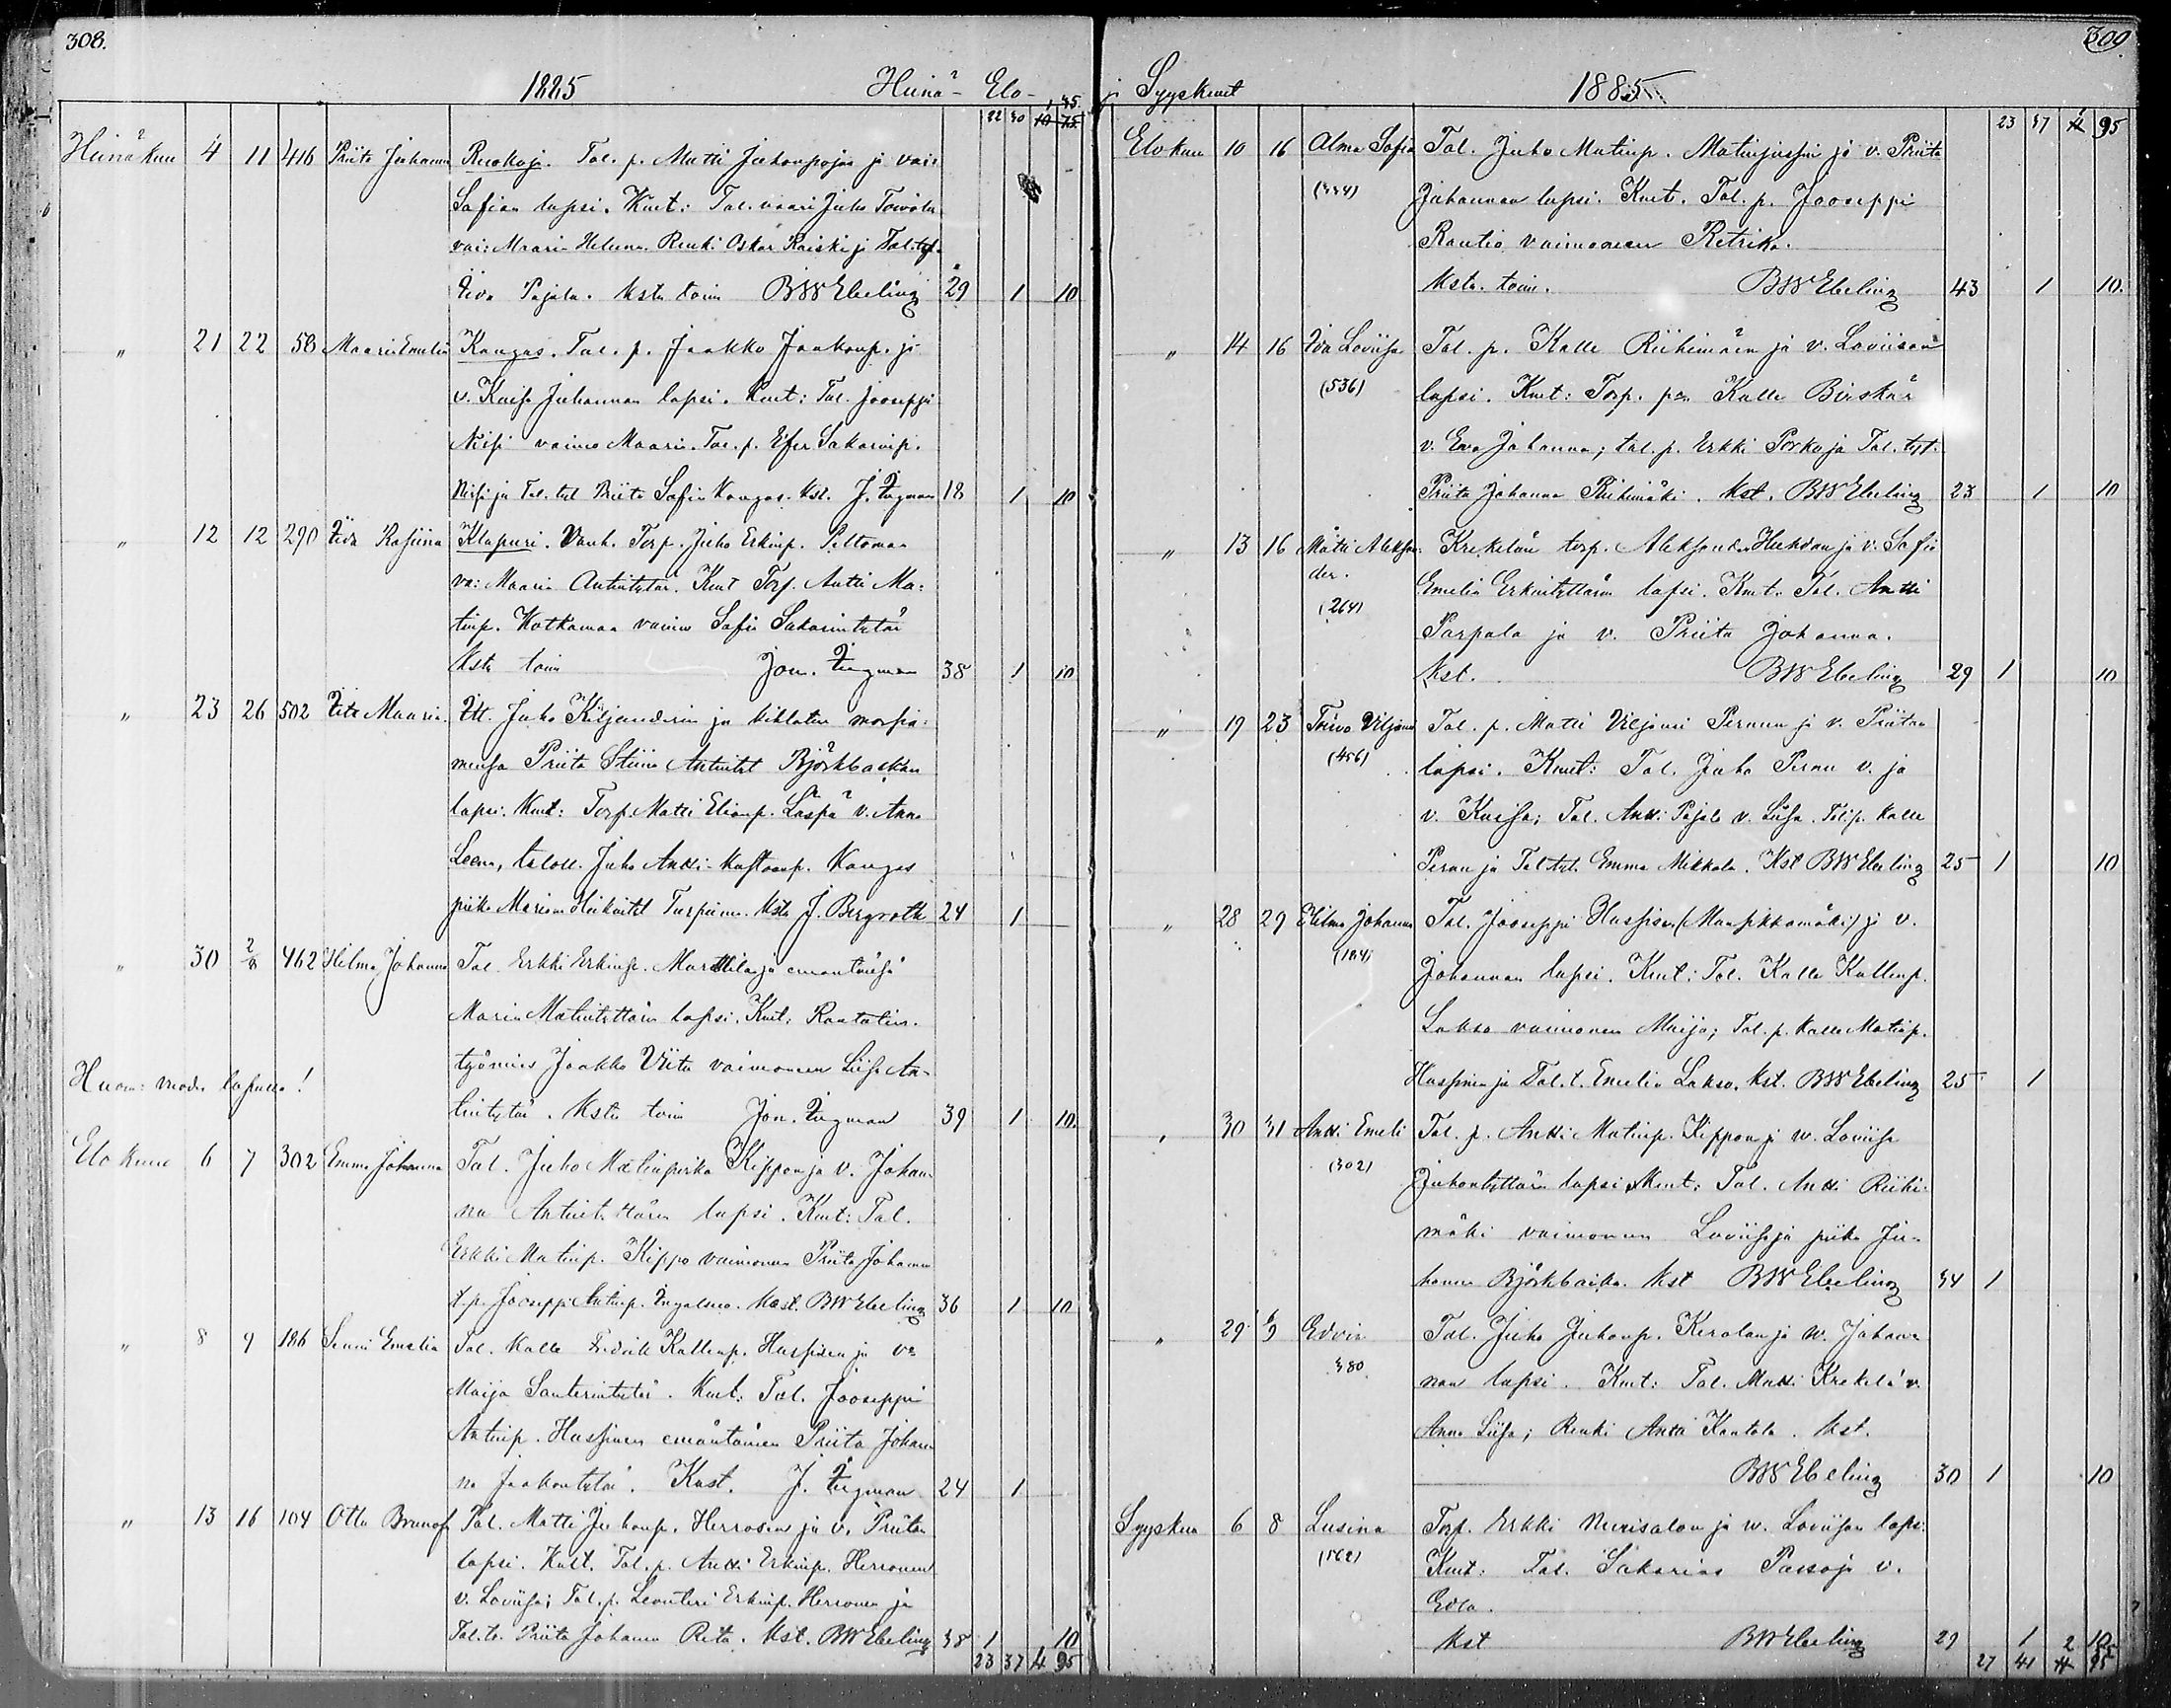 308.
1885 Heinä- Elo-
22 30 10 75 1 45.
Heinäkuu 4 11 416 Priita Johanna Ruokoja. Tal. p. Matti Juhonpojan ja vai:
Sofian lapsi. Kmt: Tal. vaari Juho Toivola
vai: Maaria Helena. Renki Oskar Kaiski ja Tal. tyt.
Iida Pajala. Kste toim BW Ebeling 29 1 10
" 21 22 58 Maaria Emelia Kangas. Tal. p. Jaakko Jaakonp. ja
v. Kaisa Juhannan lapsi. Kmt: Tal. Jooseppi
Nisi vaimo Maaria. Tal. p. Esa Sakarinp.
Nisi ja Tal. tyt Priita Sofia Kangas. Kst. J. Zegman 18 1 10
" 12 12 290 Iida Rasiina Klapuri. Vanh. Torp. Juho Erkinp. Peltomaa
va: Maaria Antintytär. Kmt Torp. Antti Ma:
tinp. Kotkamaa vaimo Sofia Sakarintytär
Kste toim Jon. Zegman 38 1 10
" 23 26 502 Maaria. Itt. Juho Kiljanderin ja kihlatun morsia-
mensa Priita Stiina Antintyt Björkbackan
lapsi. Kmt: Torp. Matti Elianp. Läspä v. Anna
Leena, taloll. Juho Antti-Kustaanp. Kangas
piika Maria Heikintyt Turpeinen. Kste J. Bergroth 24 1
" 30 2/8 462 Hilma Johanna Tal. Erkki Erkinp. Marttila ja emäntänsä
Maria Matintyttären lapsi. Kmt: Rautatien.
työmies Jaakko Viita vaimonen Liisa An-
tintytär. Kste toim Jon. Zegman 39 1 10.
Huom: vuoden lopussa!
Elokuu 6 7 302 Emma Johanna Tal. Juho Matinpoika Kippon ja v. Johan-
na Antintyttären lapsi. Kmt: Tal.
Erkki Matinp. Kippo vaimonen Priita Johanna
t.p. Jooseppi Antinp. Kast. BW Ebeling 36 1 10
" 8 9 186 Senni Emelia Tal. Kalle Fredrik Kallenp. Haspisen ja v:
Maija Santerintytär. Kmt: Tal. Jooseppi
Antinp. Haspinen emäntänsä Priita Johan-
na Jaakontytär. Kast. J. Zegman 24 1
" 13 16 104 Otto Brunof Tal. Matti Juhonp. Herrosen ja v. Priitan
lapsi. Kmt. Tal. p. Antti Erkinp. Herronen
v. Loviisa; Tal. p. Leonteri Erkinp. Herronen ja
Tal. t. Priita Johanna Rita. Kst. BW Ebeling 38 1 10
23 37 4 95
309.
ja Syyskuut 1885
23 37 4 95
Elokuu 10 16 Alma Sofia Tal. Juho Matinp. Matinjussin ja v. Priita
(334) Johannan lapsi. Kmt. Tal. p. Jooseppi
Rautio vaimoneen Retrika.
Kste. toim. BW Ebeling 43 1 10.
" 14 16 Ida Loviisa Tal. p. Kalle Riihimäen ja v. Loviisan
(536) lapsi. Kmt: Torp. p. Kalle Birskär
v. Eva Johanna; tal. p. Erkki Porko ja Tal. tyt.
Priita Johanna Riihimäki. Kst. BW Ebeling 23 1 10
" 13 16 Matti Aleksan- Krekelän torp. Aleksander Huhdan ja v. Sofia
der. Emelia Erkintyttären lapsi. Kmt. Tal. Antti
(264) Parpala ja v. Priita Johanna.
Kst. BW Ebeling 29 1 10
" 19 23 Toivo Viljami Tal. p. Matti Viljami Pernun ja v. Priitan
(456) lapsi. Kmt: Tal. Juho Pernu v. ja
v. Kaisa; Tal. Antti Pajala v. Liisa. Tal. p. Kalle
Pernu ja Tal. tyt. Emma Mikkola. Kst BW Ebeling 25 1 10
" 28 29 Hilma Johanna Tal. Jooseppi Haspisen (Mansikkamäki) ja v.
(184) Johannan lapsi. Kmt: Tal. Kalle Kallenp.
Lakso vaimonen Maija; Tal. p. Kalle Matinp.
Haspinen ja Tal. t. Emelia Lakso. Kst. BW Ebeling 25 1
" 30 31 Antti Emeli Tal. p. Antti Matinp. Kippon ja w. Loviisa
(302) Juhontyttären lapsi. Kmt: Tal. Antti Riihi-
mäki vaimonen Loviisa ja piika Jo-
hanna Björkbacka. Kst BW Ebeling 34 1
" 29 6/9 Edvin Tal. Juho Juhonp. Kerolan ja w. Johan-
380 nan lapsi. Kmt: Tal. Matti Krekelä v.
Anna Liisa; Renki Antti Kantola. Kst.
BW Ebeling 30 1 10
Syyskuu 6 8 Lusina Torp. Erkki Nurisalon ja w. Loviisan lapsi.
(562) Kmt: Tal. Sakarias Passoja v.
Edla.
Kst BW Ebeling 29 1 10
27 41 2 95